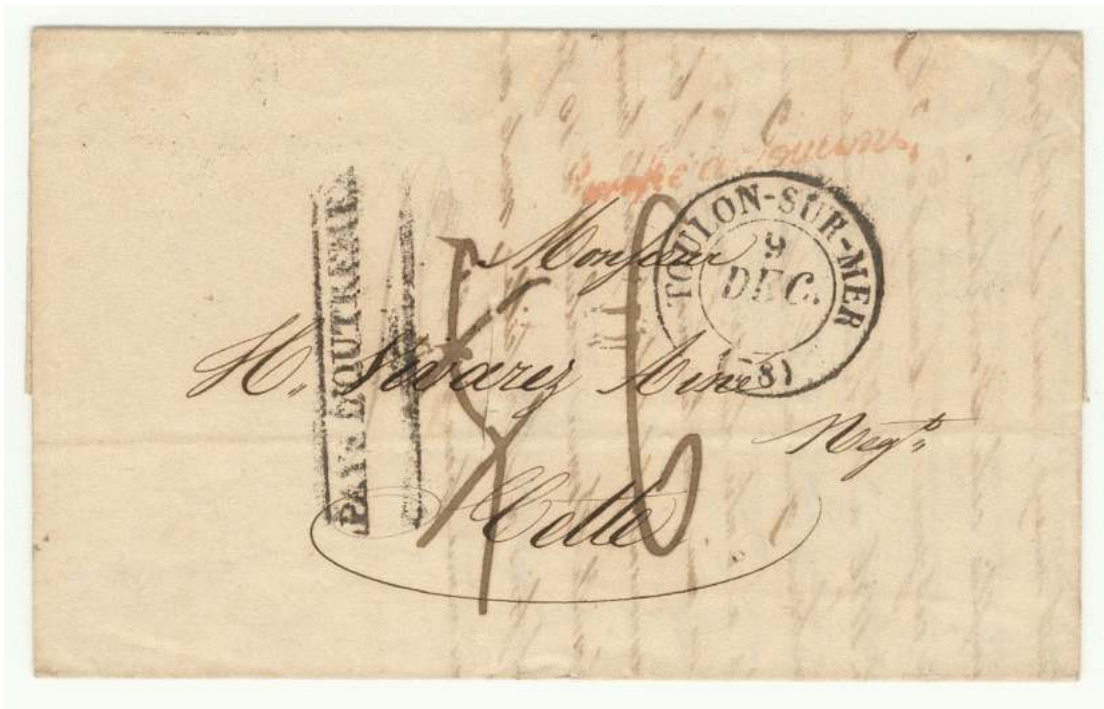 PAYS D'OUTREMER
TOULON-SUR-MER
9
DEC.
(78)
Monsieur
H. Vivarez Ainé
Negt
Cette